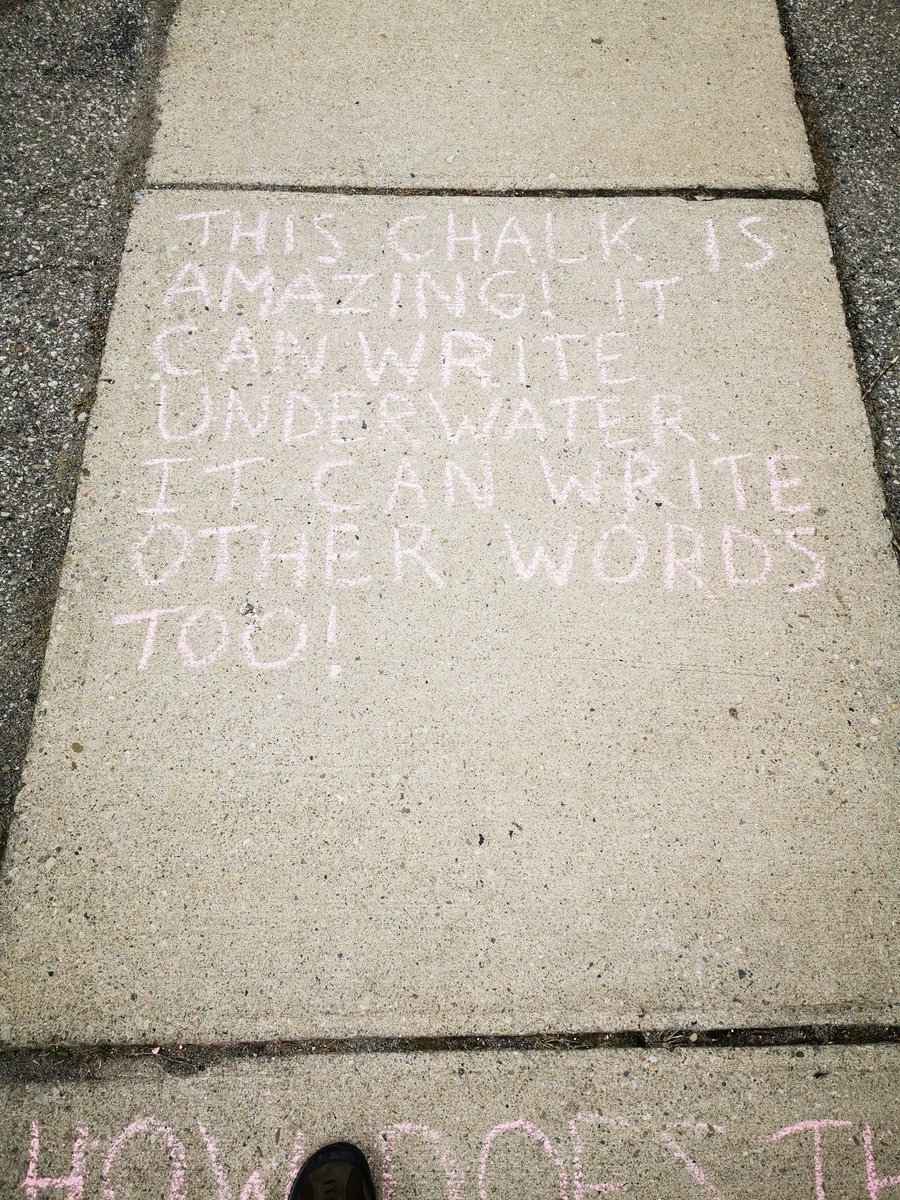 THIS CHALK IS
AMAZING! IT
CAN WRITE
UNDERWATER.
IT CAN WRITE
OTHER WORDS
TOO!
HOW DOES